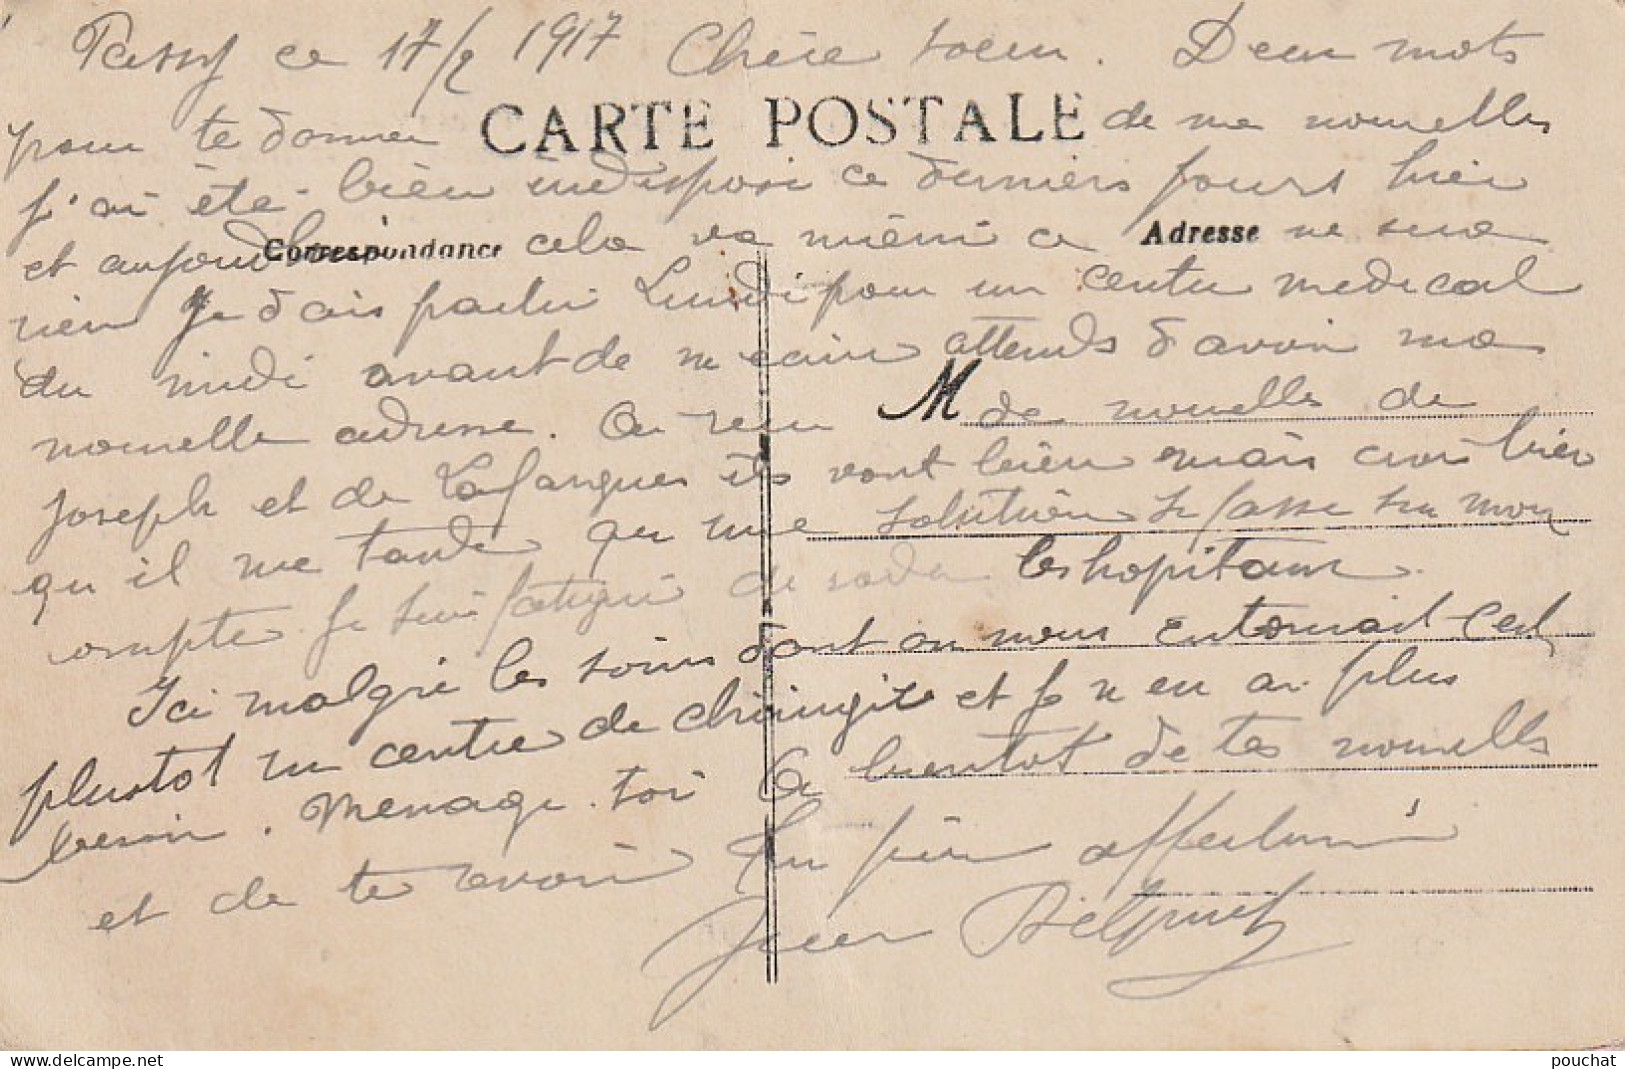 Passy ce 17/2 1917 Chère soeur. Deux mots
CARTE POSTALE
pour te donner de me nouvelles
j'ai été bien indisposé ce derniers jours hier
Correspondance
Adresse
et aujourdhui cela va mieu ce ne sera
rien Je dois partir Lundi pour un centre medical
du midi avant de m ecrire attends d avoir ma
nouvelle adresse. On recu M de nouvelles de
Joseph et de Lafargues ils vont bien mais crois bien
qu il me tarde qu une solution se fasse sur mon
compte. Je suis fatigué de les hopitaux.
Ici malgré les soins dont on nous entourait c'est
plustot un centre de chirurgie et je n en ai plus
besoin. Menage toi A bientot de tes nouvelles
et de te revoir Ton frère affectionné
Jean Delprat
pouchat